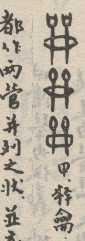 甲释龠
都作兩管并列之狀，並